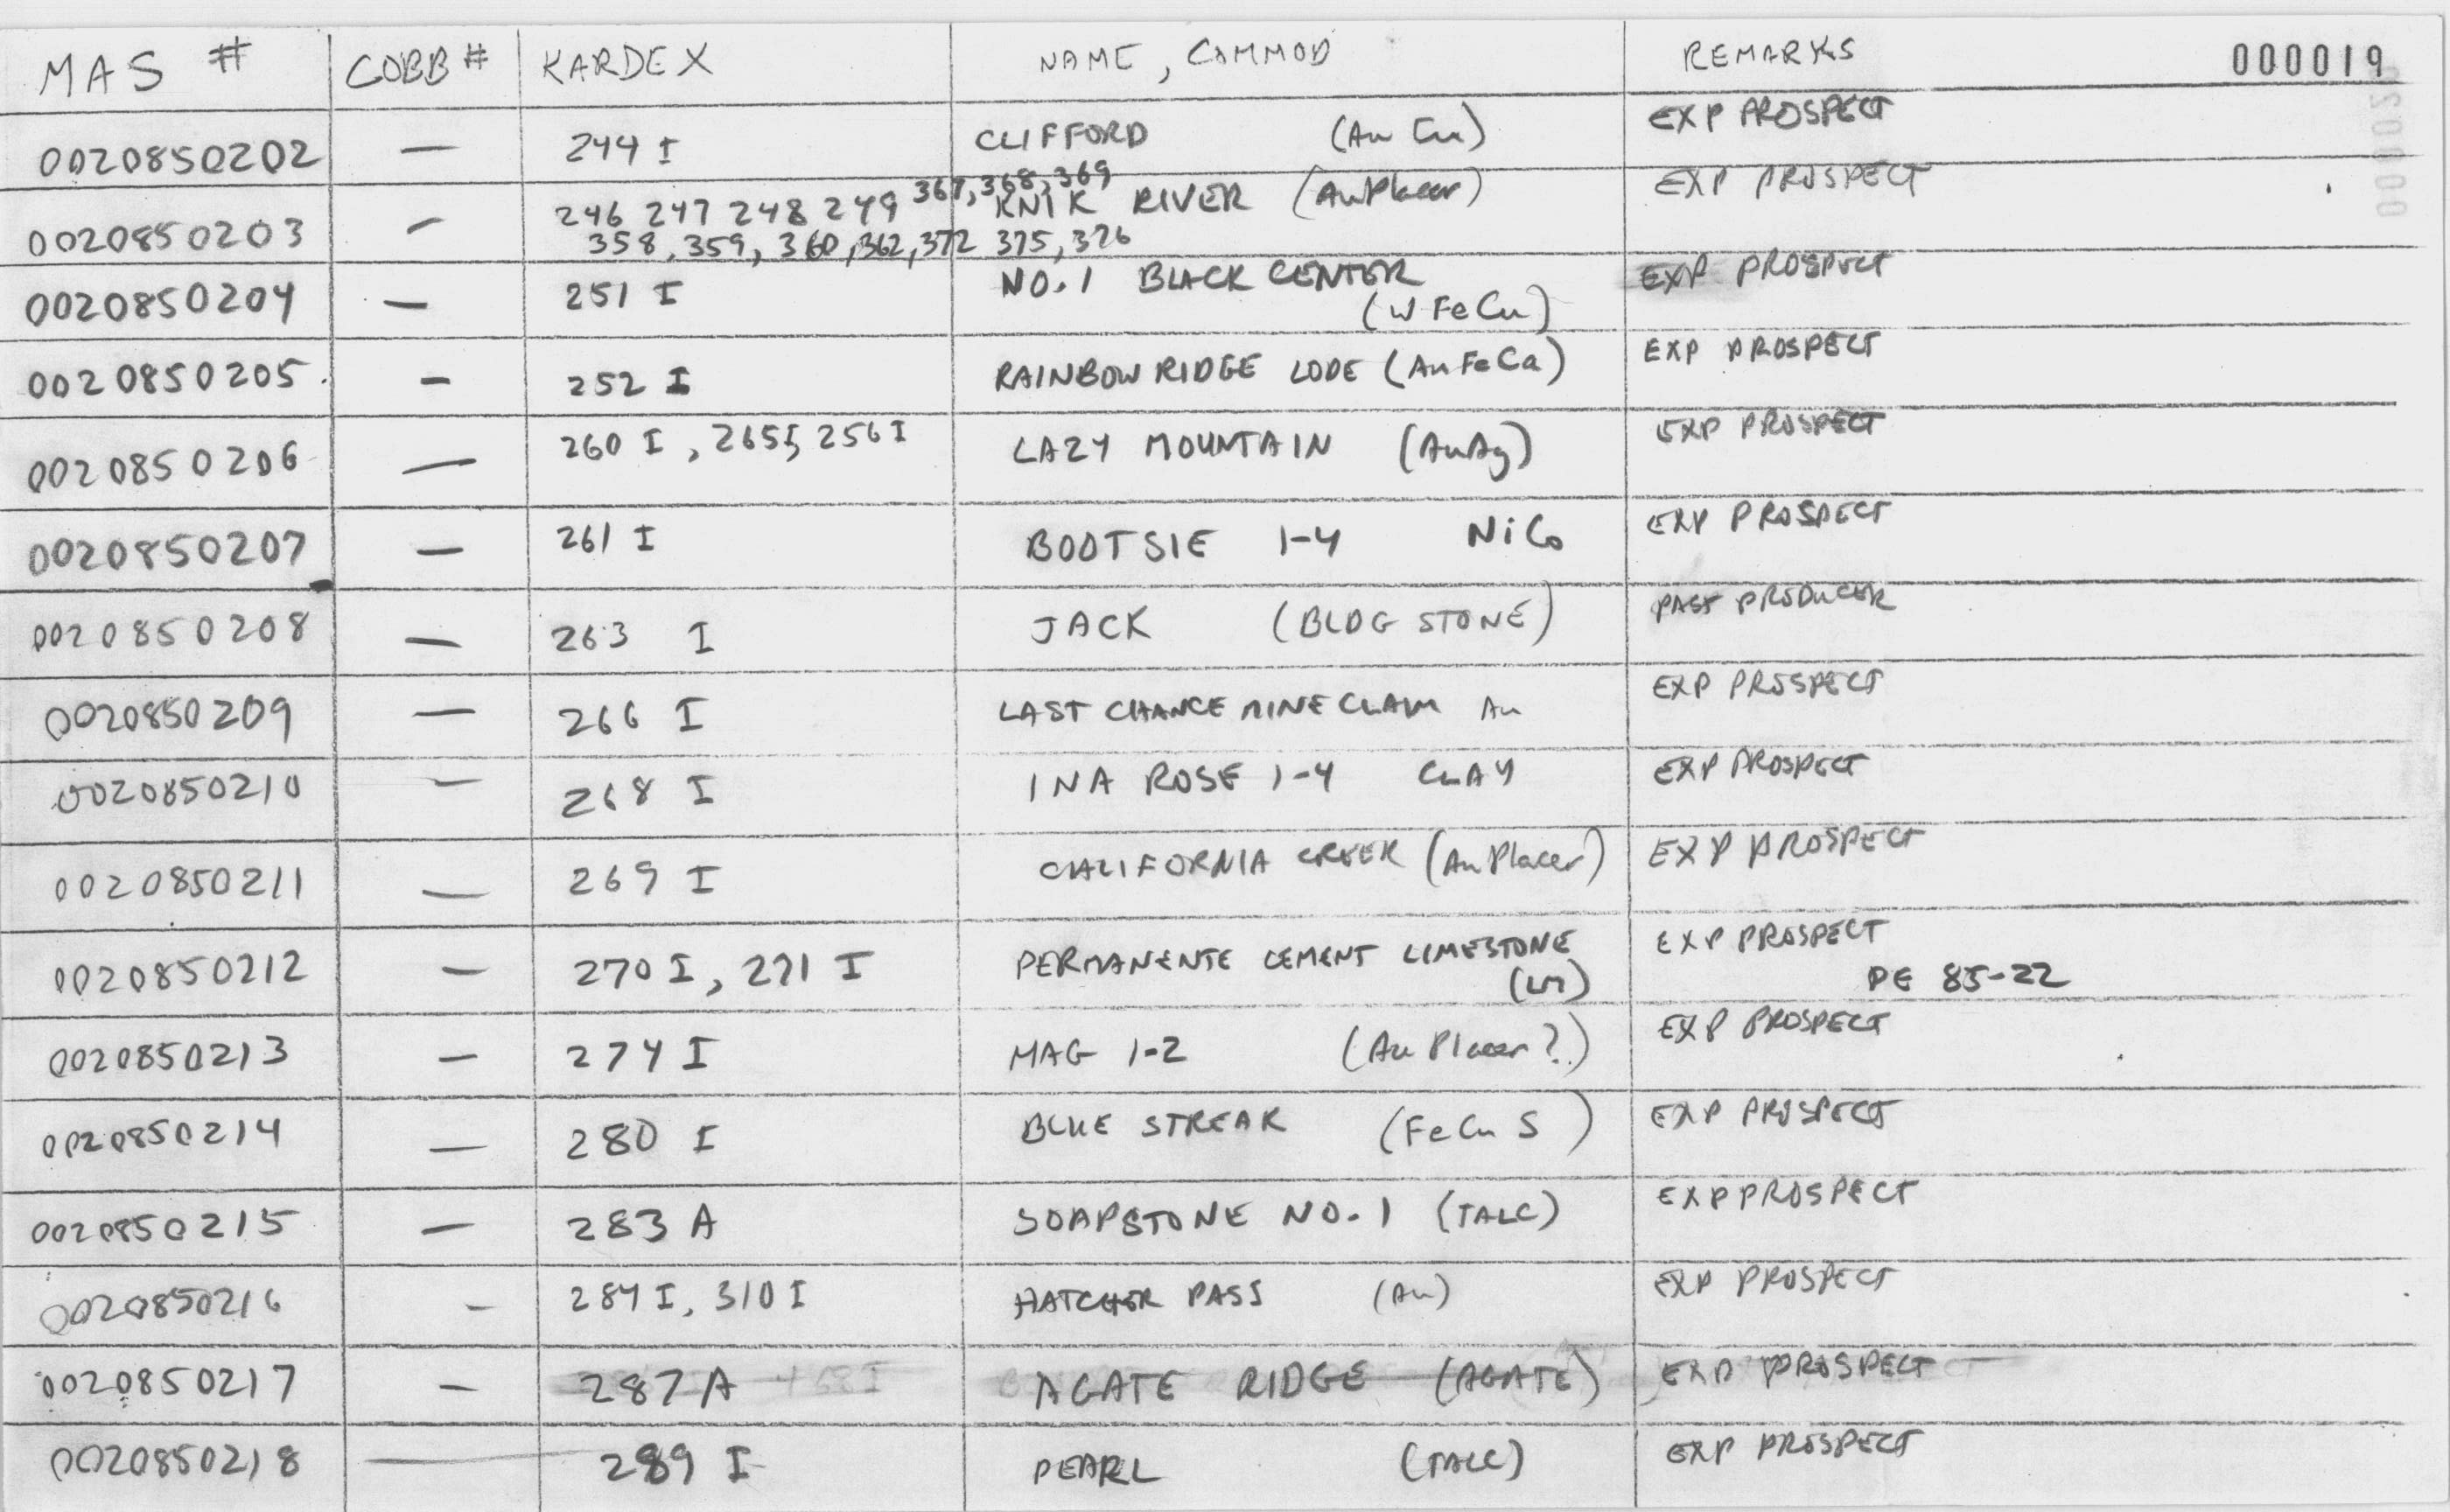 MAS # COBB # KARDEX NAME, COMMOD REMARKS 000019
0020850202 — 244 I CLIFFORD (Au Cu) EXP PROSPECT
367, 368, 369
0020850203 — 246 247 248 249 KNIK RIVER (Au Placer) EXP PROSPECT
358, 359, 360, 362, 372 375, 376
0020850204 — 251 I NO. 1 BLACK CENTER EXP PROSPECT
(W Fe Cu)
0020850205 — 252 I RAINBOW RIDGE LODE (Au Fe Ca) EXP PROSPECT
0020850206 — 260 I, 265I, 256 I LAZY MOUNTAIN (Au Ag) EXP PROSPECT
0020850207 — 261 I BOOTSIE 1-4 Ni Co EXP PROSPECT
0020850208 — 263 I JACK (BLDG STONE) PAST PRODUCER
0020850209 — 266 I LAST CHANCE MINE CLAIM Au EXP PROSPECT
0020850210 — 268 I INA ROSE 1-4 CLAY EXP PROSPECT
0020850211 — 269 I CALIFORNIA CREEK (Au Placer) EXP PROSPECT
0020850212 — 270 I, 271 I PERMANENTE CEMENT LIMESTONE EXP PROSPECT
PE 85-22
0020850213 — 274 I MAG 1-2 (Au Placer?) EXP PROSPECT
0020850214 — 280 I BLUE STREAK (Fe Cu S) EXP PROSPECT
0020850215 — 283 A SOAPSTONE NO. 1 (TALC) EXP PROSPECT
0020850216 — 284 I, 310 I HATCHER PASS (Au) EXP PROSPECT
0020850217 — 287 A AGATE RIDGE (AGATE) EXP PROSPECT
0020850218 — 289 I PEARL (TALC) EXP PROSPECT